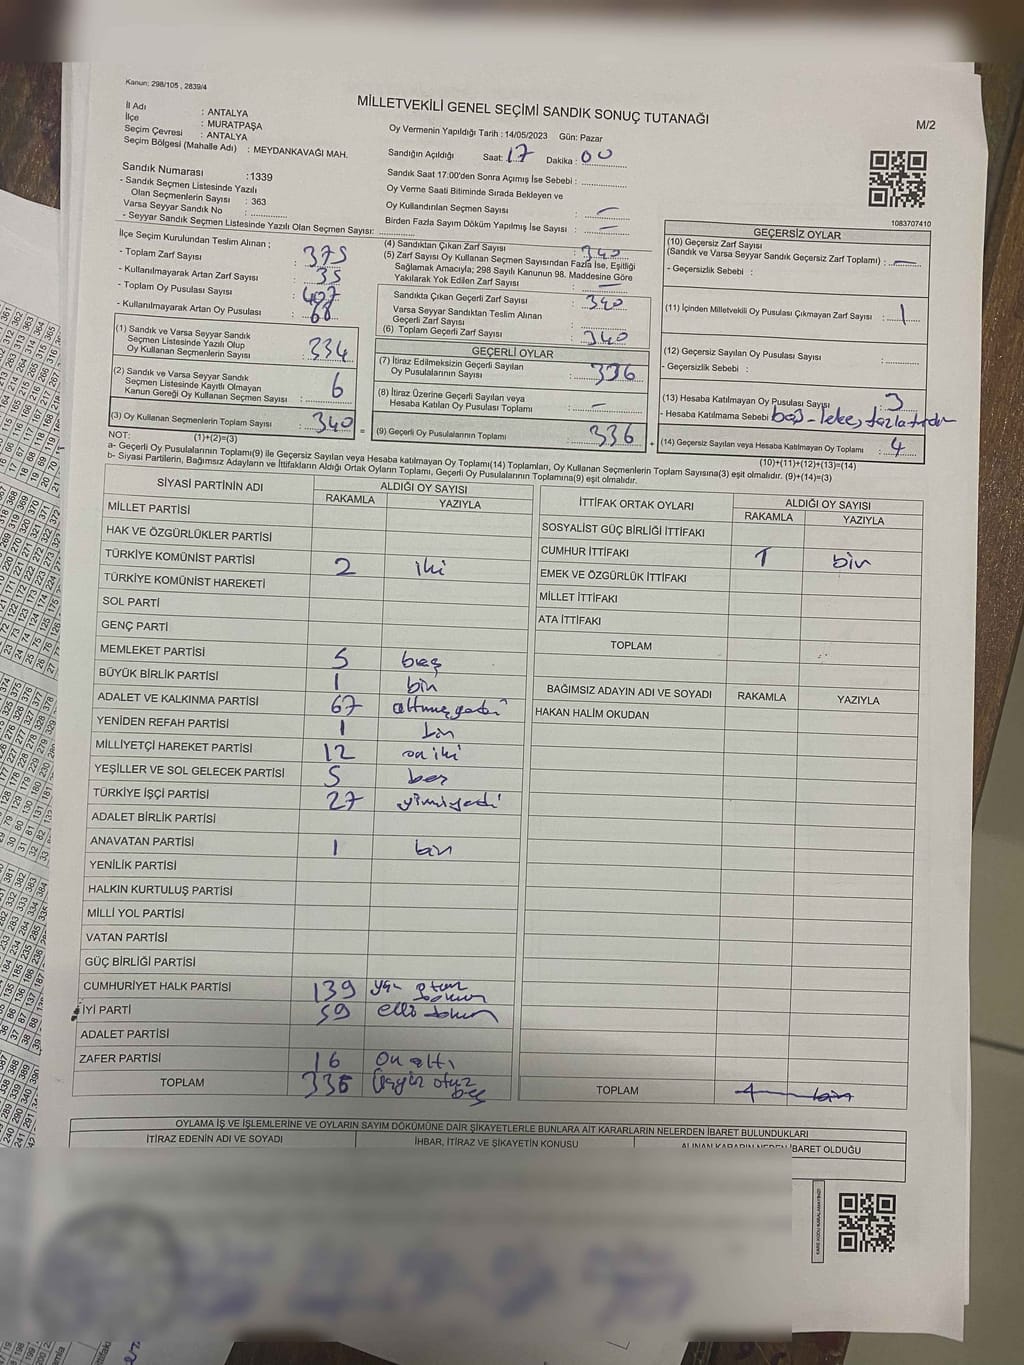 Kanun: 298/105 , 2839/4
MİLLETVEKİLİ GENEL SEÇİMİ SANDIK SONUÇ TUTANAĞI
M/2
İl Adı : ANTALYA
İlçe : MURATPAŞA
Seçim Çevresi : ANTALYA
Seçim Bölgesi (Mahalle Adı) : MEYDANKAVAĞI MAH.
Sandık Numarası :1339
- Sandık Seçmen Listesinde Yazılı
Olan Seçmenlerin Sayısı : 363
Varsa Seyyar Sandık No :
- Seyyar Sandık Seçmen Listesinde Yazılı Olan Seçmen Sayısı:
Oy Vermenin Yapıldığı Tarih : 14/05/2023 Gün: Pazar
Sandığın Açıldığı Saat: 17 Dakika : 00
Sandık Saat 17:00'den Sonra Açımış İse Sebebi :
Oy Verme Saati Bitiminde Sırada Bekleyen ve
Oy Kullandırılan Seçmen Sayısı : —
Birden Fazla Sayım Döküm Yapılmış İse Sayısı : —
1083707410
İlçe Seçim Kurulundan Teslim Alınan ;
- Toplam Zarf Sayısı : 375
- Kullanılmayarak Artan Zarf Sayısı : 35
- Toplam Oy Pusulası Sayısı : 407
- Kullanılmayarak Artan Oy Pusulası : 68
(1) Sandık ve Varsa Seyyar Sandık
Seçmen Listesinde Yazılı Olup
Oy Kullanan Seçmenlerin Sayısı : 334
(2) Sandık ve Varsa Seyyar Sandık
Seçmen Listesinde Kayıtlı Olmayan
Kanun Gereği Oy Kullanan Seçmen Sayısı : 6
(3) Oy Kullanan Seçmenlerin Toplam Sayısı : 340
(1)+(2)=(3)
(4) Sandıktan Çıkan Zarf Sayısı : 340
(5) Zarf Sayısı Oy Kullanan Seçmen Sayısından Fazla İse, Eşitliği
Sağlamak Amacıyla; 298 Sayılı Kanunun 98. Maddesine Göre
Yakılarak Yok Edilen Zarf Sayısı : —
Sandıkta Çıkan Geçerli Zarf Sayısı : 340
Varsa Seyyar Sandıktan Teslim Alınan
Geçerli Zarf Sayısı :
(6) Toplam Geçerli Zarf Sayısı : 340
GEÇERLİ OYLAR
(7) İtiraz Edilmeksizin Geçerli Sayılan
Oy Pusulalarının Sayısı : 336
(8) İtiraz Üzerine Geçerli Sayılan veya
Hesaba Katılan Oy Pusulası Toplamı : —
(9) Geçerli Oy Pusulalarının Toplamı : 336
GEÇERSİZ OYLAR
(10) Geçersiz Zarf Sayısı
(Sandık ve Varsa Seyyar Sandık Geçersiz Zarf Toplamı) : —
- Geçersizlik Sebebi :
(11) İçinden Milletvekili Oy Pusulası Çıkmayan Zarf Sayısı : 1
(12) Geçersiz Sayılan Oy Pusulası Sayısı :
- Geçersizlik Sebebi :
(13) Hesaba Katılmayan Oy Pusulası Sayısı : 3
- Hesaba Katılmama Sebebi : boş-leke,
(14) Geçersiz Sayılan veya Hesaba Katılmayan Oy Toplamı : 4
(10)+(11)+(12)+(13)=(14)
NOT:
a- Geçerli Oy Pusulalarının Toplamı(9) ile Geçersiz Sayılan veya Hesaba katılmayan Oy Toplamı(14) Toplamları, Oy Kullanan Seçmenlerin Toplam Sayısına(3) eşit olmalıdır. (9)+(14)=(3)
b- Siyasi Partilerin, Bağımsız Adayların ve İttifakların Aldığı Ortak Oyların Toplamı, Geçerli Oy Pusulalarının Toplamına(9) eşit olmalıdır.
SİYASİ PARTİNİN ADI ALDIĞI OY SAYISI
RAKAMLA YAZIYLA
MİLLET PARTİSİ
HAK VE ÖZGÜRLÜKLER PARTİSİ
TÜRKİYE KOMÜNİST PARTİSİ 2 iki
TÜRKİYE KOMÜNİST HAREKETİ
SOL PARTİ
GENÇ PARTİ
MEMLEKET PARTİSİ 5 beş
BÜYÜK BİRLİK PARTİSİ 1 bir
ADALET VE KALKINMA PARTİSİ 67 altmışyedi
YENİDEN REFAH PARTİSİ 1 bir
MİLLİYETÇİ HAREKET PARTİSİ 12 on iki
YEŞİLLER VE SOL GELECEK PARTİSİ 5 beş
TÜRKİYE İŞÇİ PARTİSİ 27 yirmiyedi
ADALET BİRLİK PARTİSİ
ANAVATAN PARTİSİ 1 bir
YENİLİK PARTİSİ
HALKIN KURTULUŞ PARTİSİ
MİLLİ YOL PARTİSİ
VATAN PARTİSİ
GÜÇ BİRLİĞİ PARTİSİ
CUMHURİYET HALK PARTİSİ 139 yüz otuz dokuz
İYİ PARTİ 59 elli dokuz
ADALET PARTİSİ
ZAFER PARTİSİ 16 On altı
TOPLAM 335 üçyüz otuz beş
İTTİFAK ORTAK OYLARI ALDIĞI OY SAYISI
RAKAMLA YAZIYLA
SOSYALİST GÜÇ BİRLİĞİ İTTİFAKI
CUMHUR İTTİFAKI 1 bir
EMEK VE ÖZGÜRLÜK İTTİFAKI
MİLLET İTTİFAKI
ATA İTTİFAKI
TOPLAM
BAĞIMSIZ ADAYIN ADI VE SOYADI RAKAMLA YAZIYLA
HAKAN HALİM OKUDAN
TOPLAM 1 bir
OYLAMA İŞ VE İŞLEMLERİNE VE OYLARIN SAYIM DÖKÜMÜNE DAİR ŞİKAYETLERLE BUNLARA AİT KARARLARIN NELERDEN İBARET BULUNDUKLARI
İTİRAZ EDENİN ADI VE SOYADI İHBAR, İTİRAZ VE ŞİKAYETİN KONUSU ALINAN KARARIN NEDEN İBARET OLDUĞU